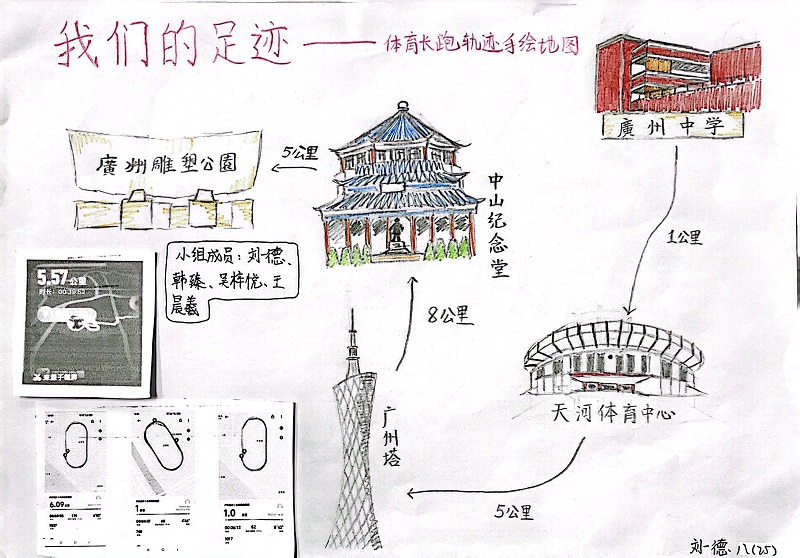 我们的足迹——体育长跑轨迹手绘地图
廣州中学
1公里
天河体育中心
5公里
广州塔
8公里
中山纪念堂
5公里
廣州雕塑公園
小组成员：刘一德、
韩臻、吴梓悦、王
晨羲
5.57公里
6.09
1
1.0
刘一德 八(25)